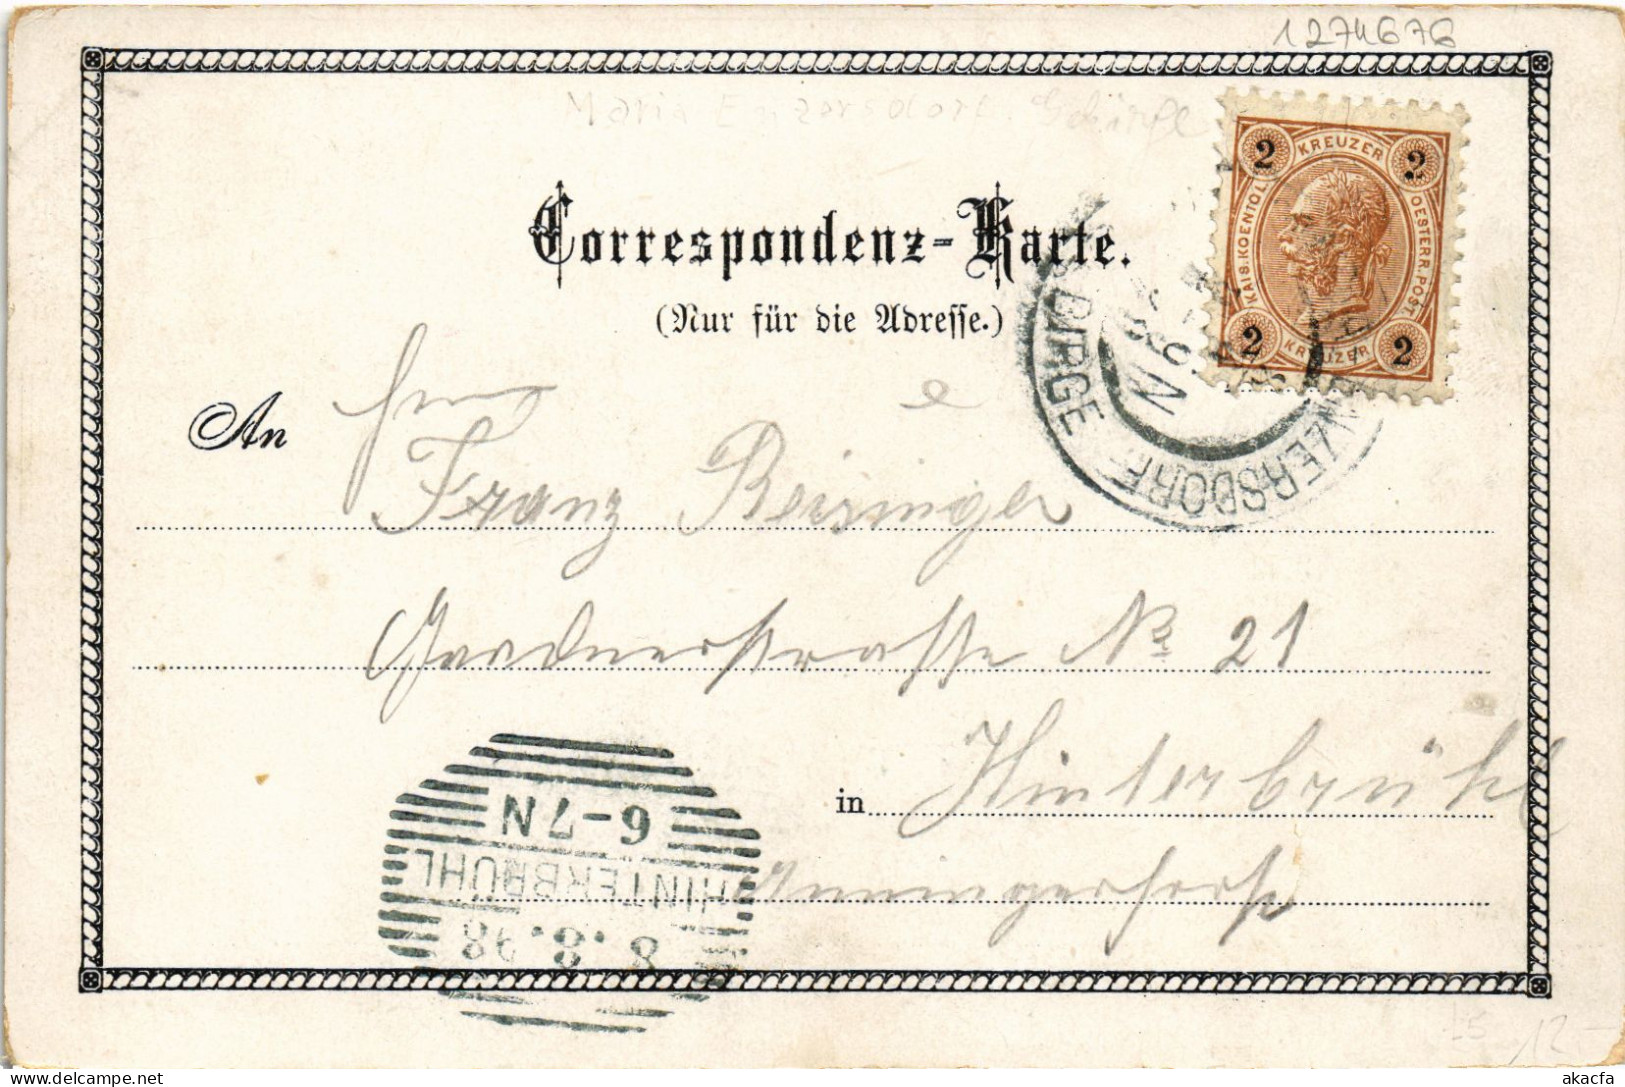 1274676
Maria Enzersdorf. Gebirge
2 KREUZER 2
KAIS. KOENIGL.
OESTERR. POST
2 KREUZER 2
Correspondenz-Karte.
(Nur für die Adresse.)
ENZERSDORF
GEBIRGE
An Herrn
Franz Reisinger
Gardnerstrasse № 21
in Hinterbrühl
6-7N
HINTERBRÜHL
8.8.98
12-
akacfa